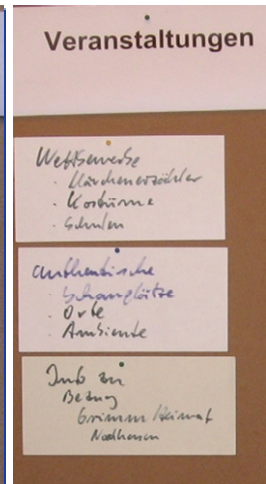 Veranstaltungen
Wettbewerbe
· Märchenerzähler
· Kostüme
· Schulen
authentische
· Schauplätze
· Orte
· Ambiente
Info zu
Bezug
Grimm Heimat
Nordhessen